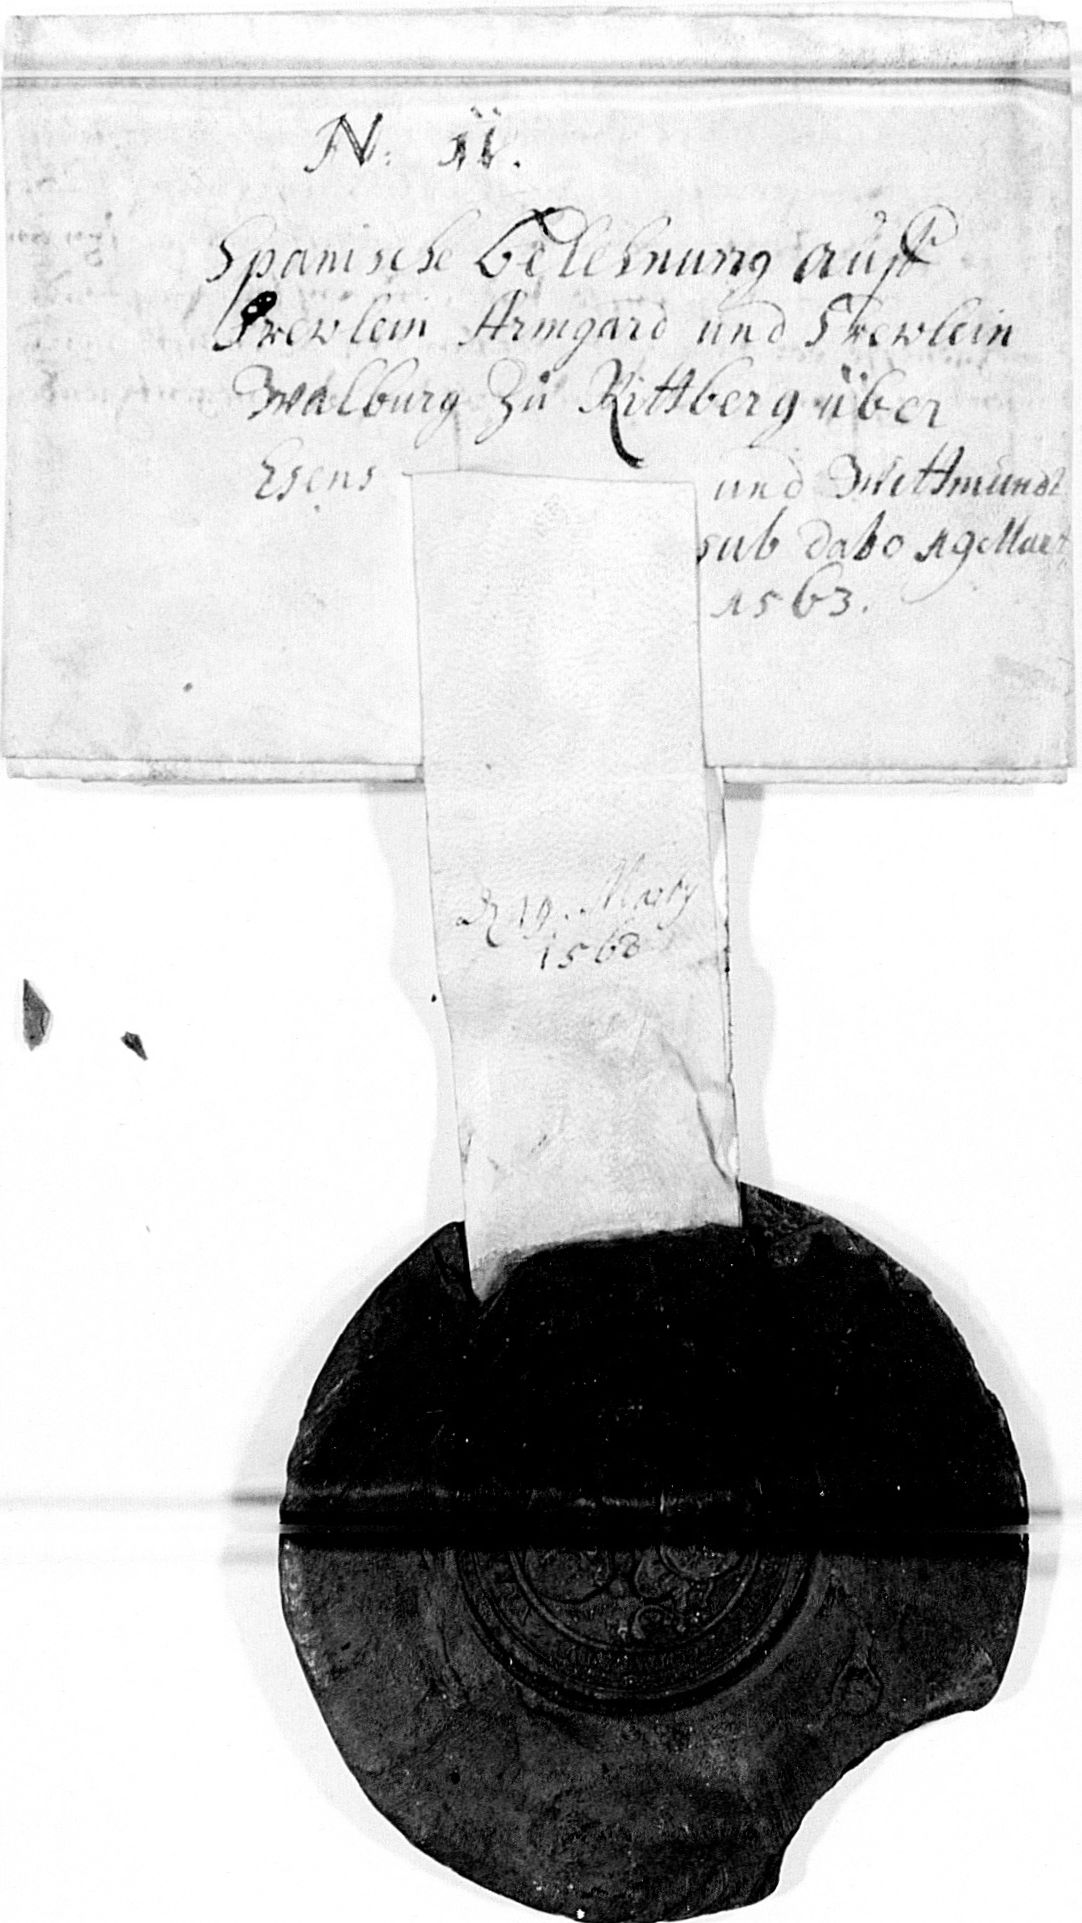 N: 11.
Spanische Belehnung auff
Frewlein Armgard und Frewlein
Walburg zu Rittberg über
Esens und Wittmundt
sub dato 19 Mart
1563.
19. Marty
1563